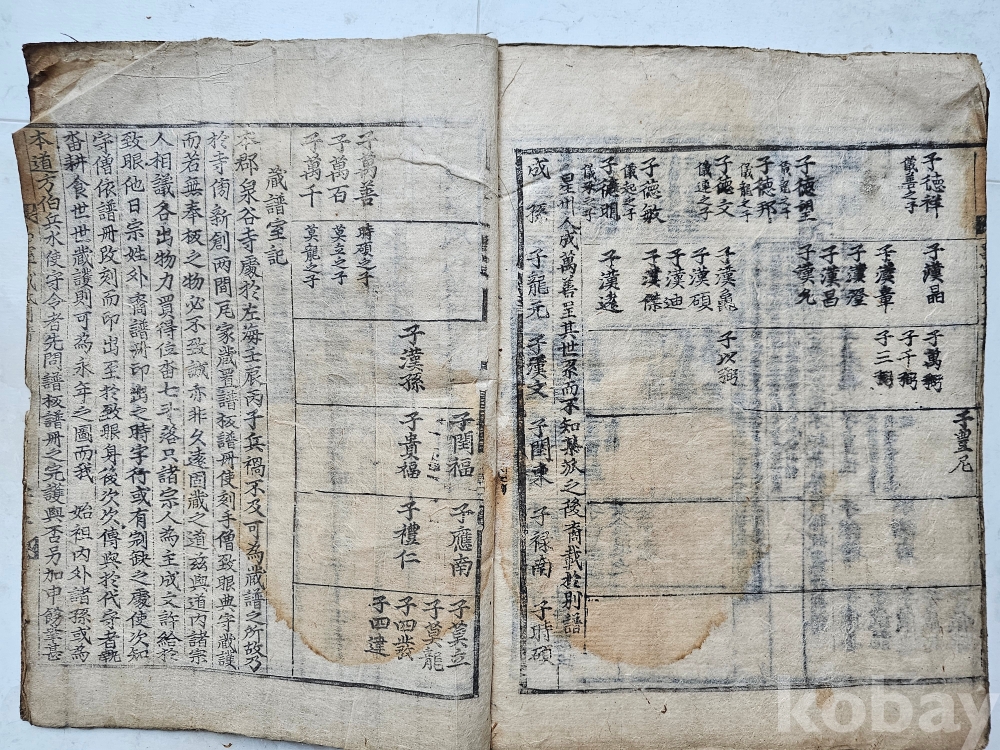 子德祥
儀善之子
子漢品
子萬㣲
子漢章
子千㣲
子三㣲
子豊尼
子漢澄
子漢昌
子漢允
子德邦
儀龍之子
子德文
儀運之子
子漢龜
子漢碩
子以㣲
子漢迪
子德敏
儀起之子
子漢傑
子德明
子漢遠
星州人成萬善呈其世系而不知某派之後裔載於別譜
成 子龍元 子漢文 子閏東 子 南 子時碩
子萬善
時碩之子
子萬百
莫立之子
子萬千
莫龍之子
子漢孫
子閏福
子貴福
子應南
子禮仁
子莫立
子莫龍
子四歲
子四達
藏譜室記
本郡泉谷寺處於左海壬辰丙子兵禍不及可為藏譜之所故乃
於寺傍新創兩間瓦家藏置譜板譜冊使刻手僧致眼典守藏護
而若無奉板之物必不致誠亦非久遠固藏之道玆與道內諸宗
人相議各出物力買得位畓七斗落只諸宗人為主成文許給於
致眼他日宗姓外裔譜冊印出之時字行或有刓缺之處使次知
守僧依譜冊改刻而印出至於致眼身後次次傳與於代守者執
畓耕食世世藏護則可為永年之圖而我 始祖內外諸孫或為
本道方伯兵水使守令者先問譜板譜冊之完護與否另加申飭幸甚
kobay